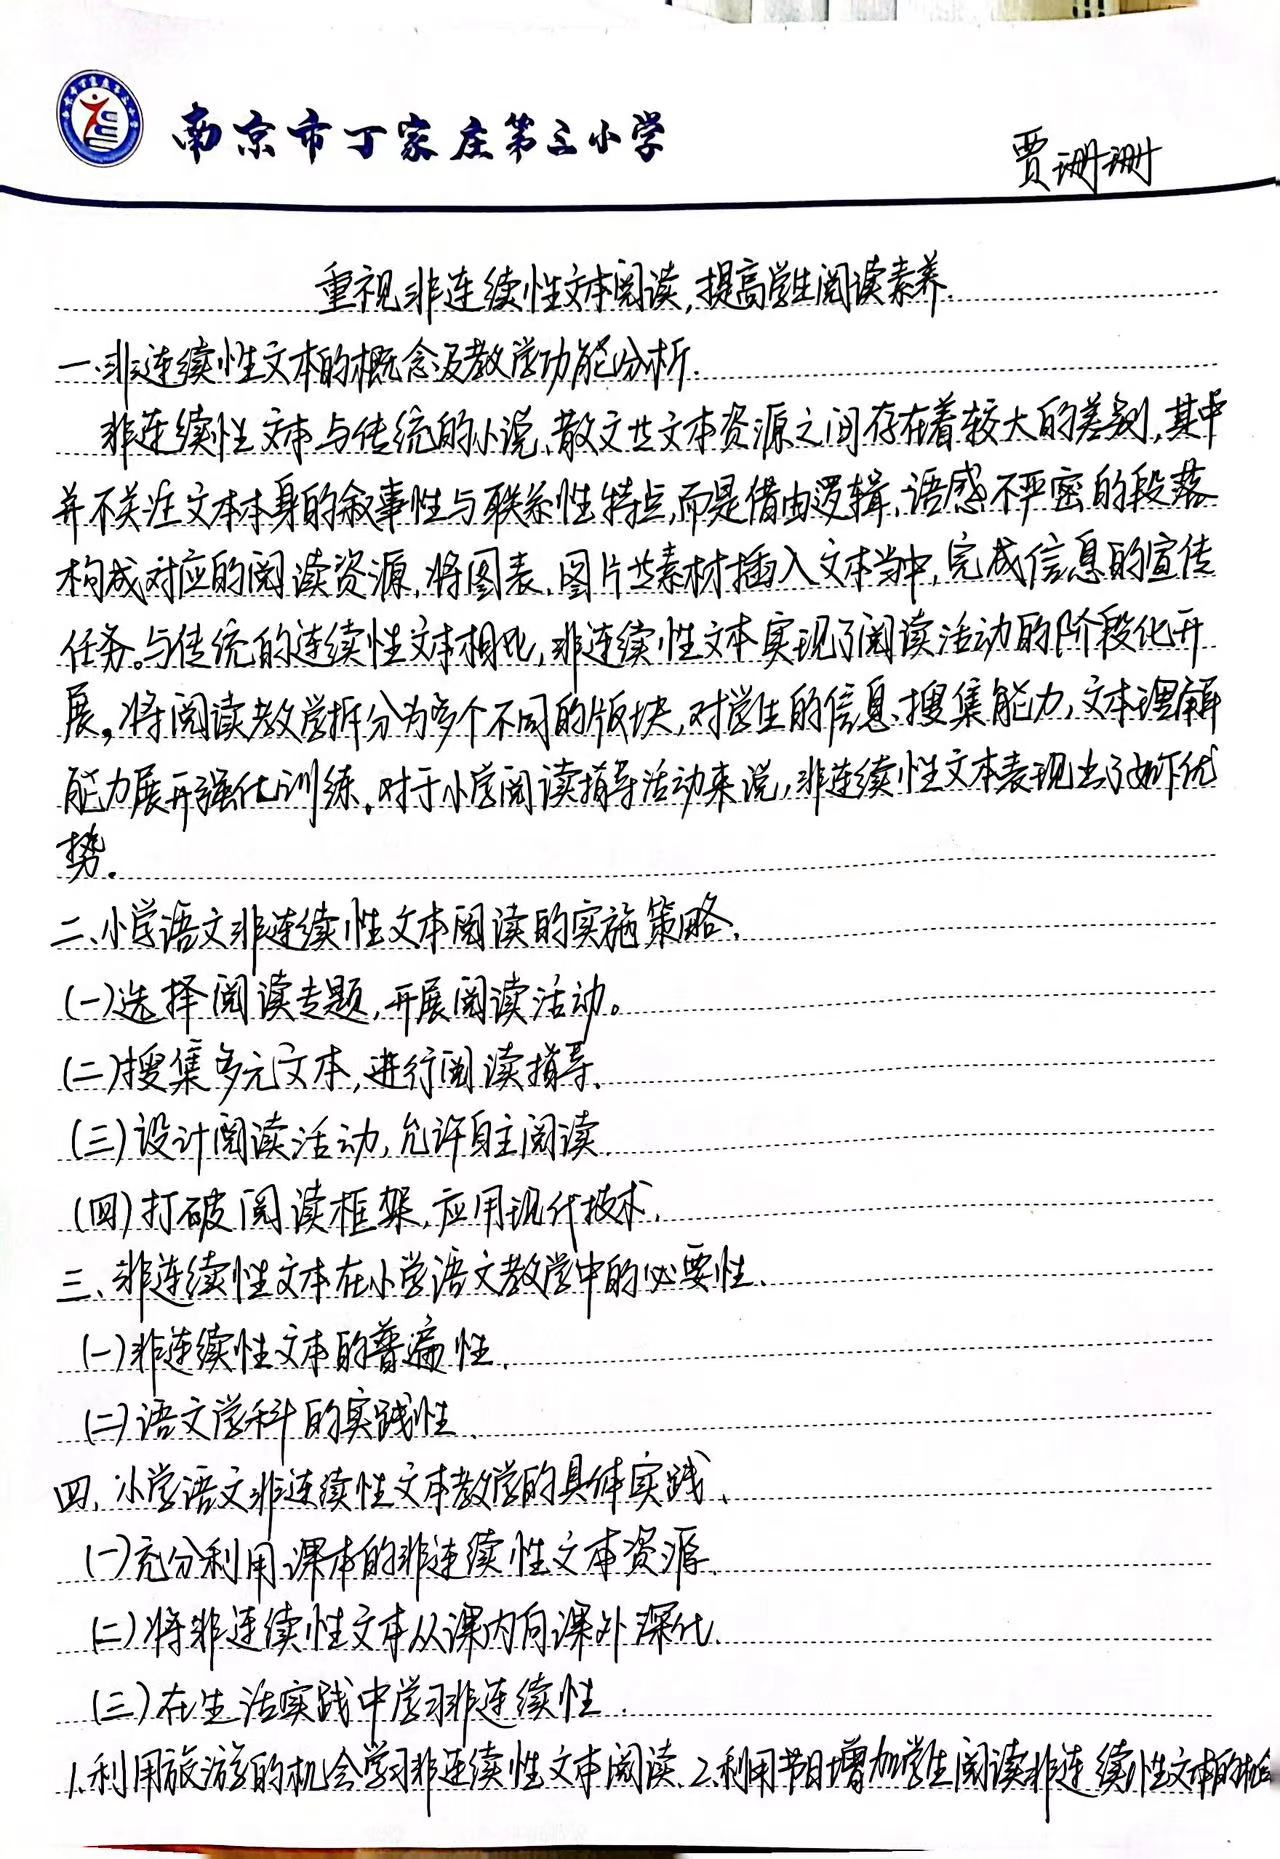 南京市丁家庄第三小学
贾珊珊
重视非连续性文本阅读,提高学生阅读素养.
一、非连续性文本的概念及教学功能分析.
非连续性文本与传统的小说、散文性文本资源之间存在着较大的差别,其中
并不关注文本本身的叙事性与联系性特点,而是借由逻辑、语感不严密的段落
构成对应的阅读资源,将图表、图片等素材插入文本当中,完成信息的宣传
任务。与传统的连续性文本相比,非连续性文本实现了阅读活动的阶段化开
展。将阅读教学拆分为多个不同的版块,对学生的信息、搜集能力,文本理解
能力展开强化训练。对于小学阅读指导活动来说,非连续性文本表现出了如下优
势.
二、小学语文非连续性文本阅读的实施策略.
(一)选择阅读专题,开展阅读活动。
(二)搜集多元文本,进行阅读指导.
(三)设计阅读活动,允许自主阅读.
(四)打破阅读框架,应用现代技术.
三、非连续性文本在小学语文教学中的必要性.
(一)非连续性文本的普遍性.
(二)语文学科的实践性.
四、小学语文非连续性文本教学的具体实践.
(一)充分利用课本的非连续性文本资源.
(二)将非连续性文本从课内向课外深化.
(三)在生活实践中学习非连续性.
1.利用旅游的机会学习非连续性文本阅读.2.利用节日增加学生阅读非连续性文本的机会